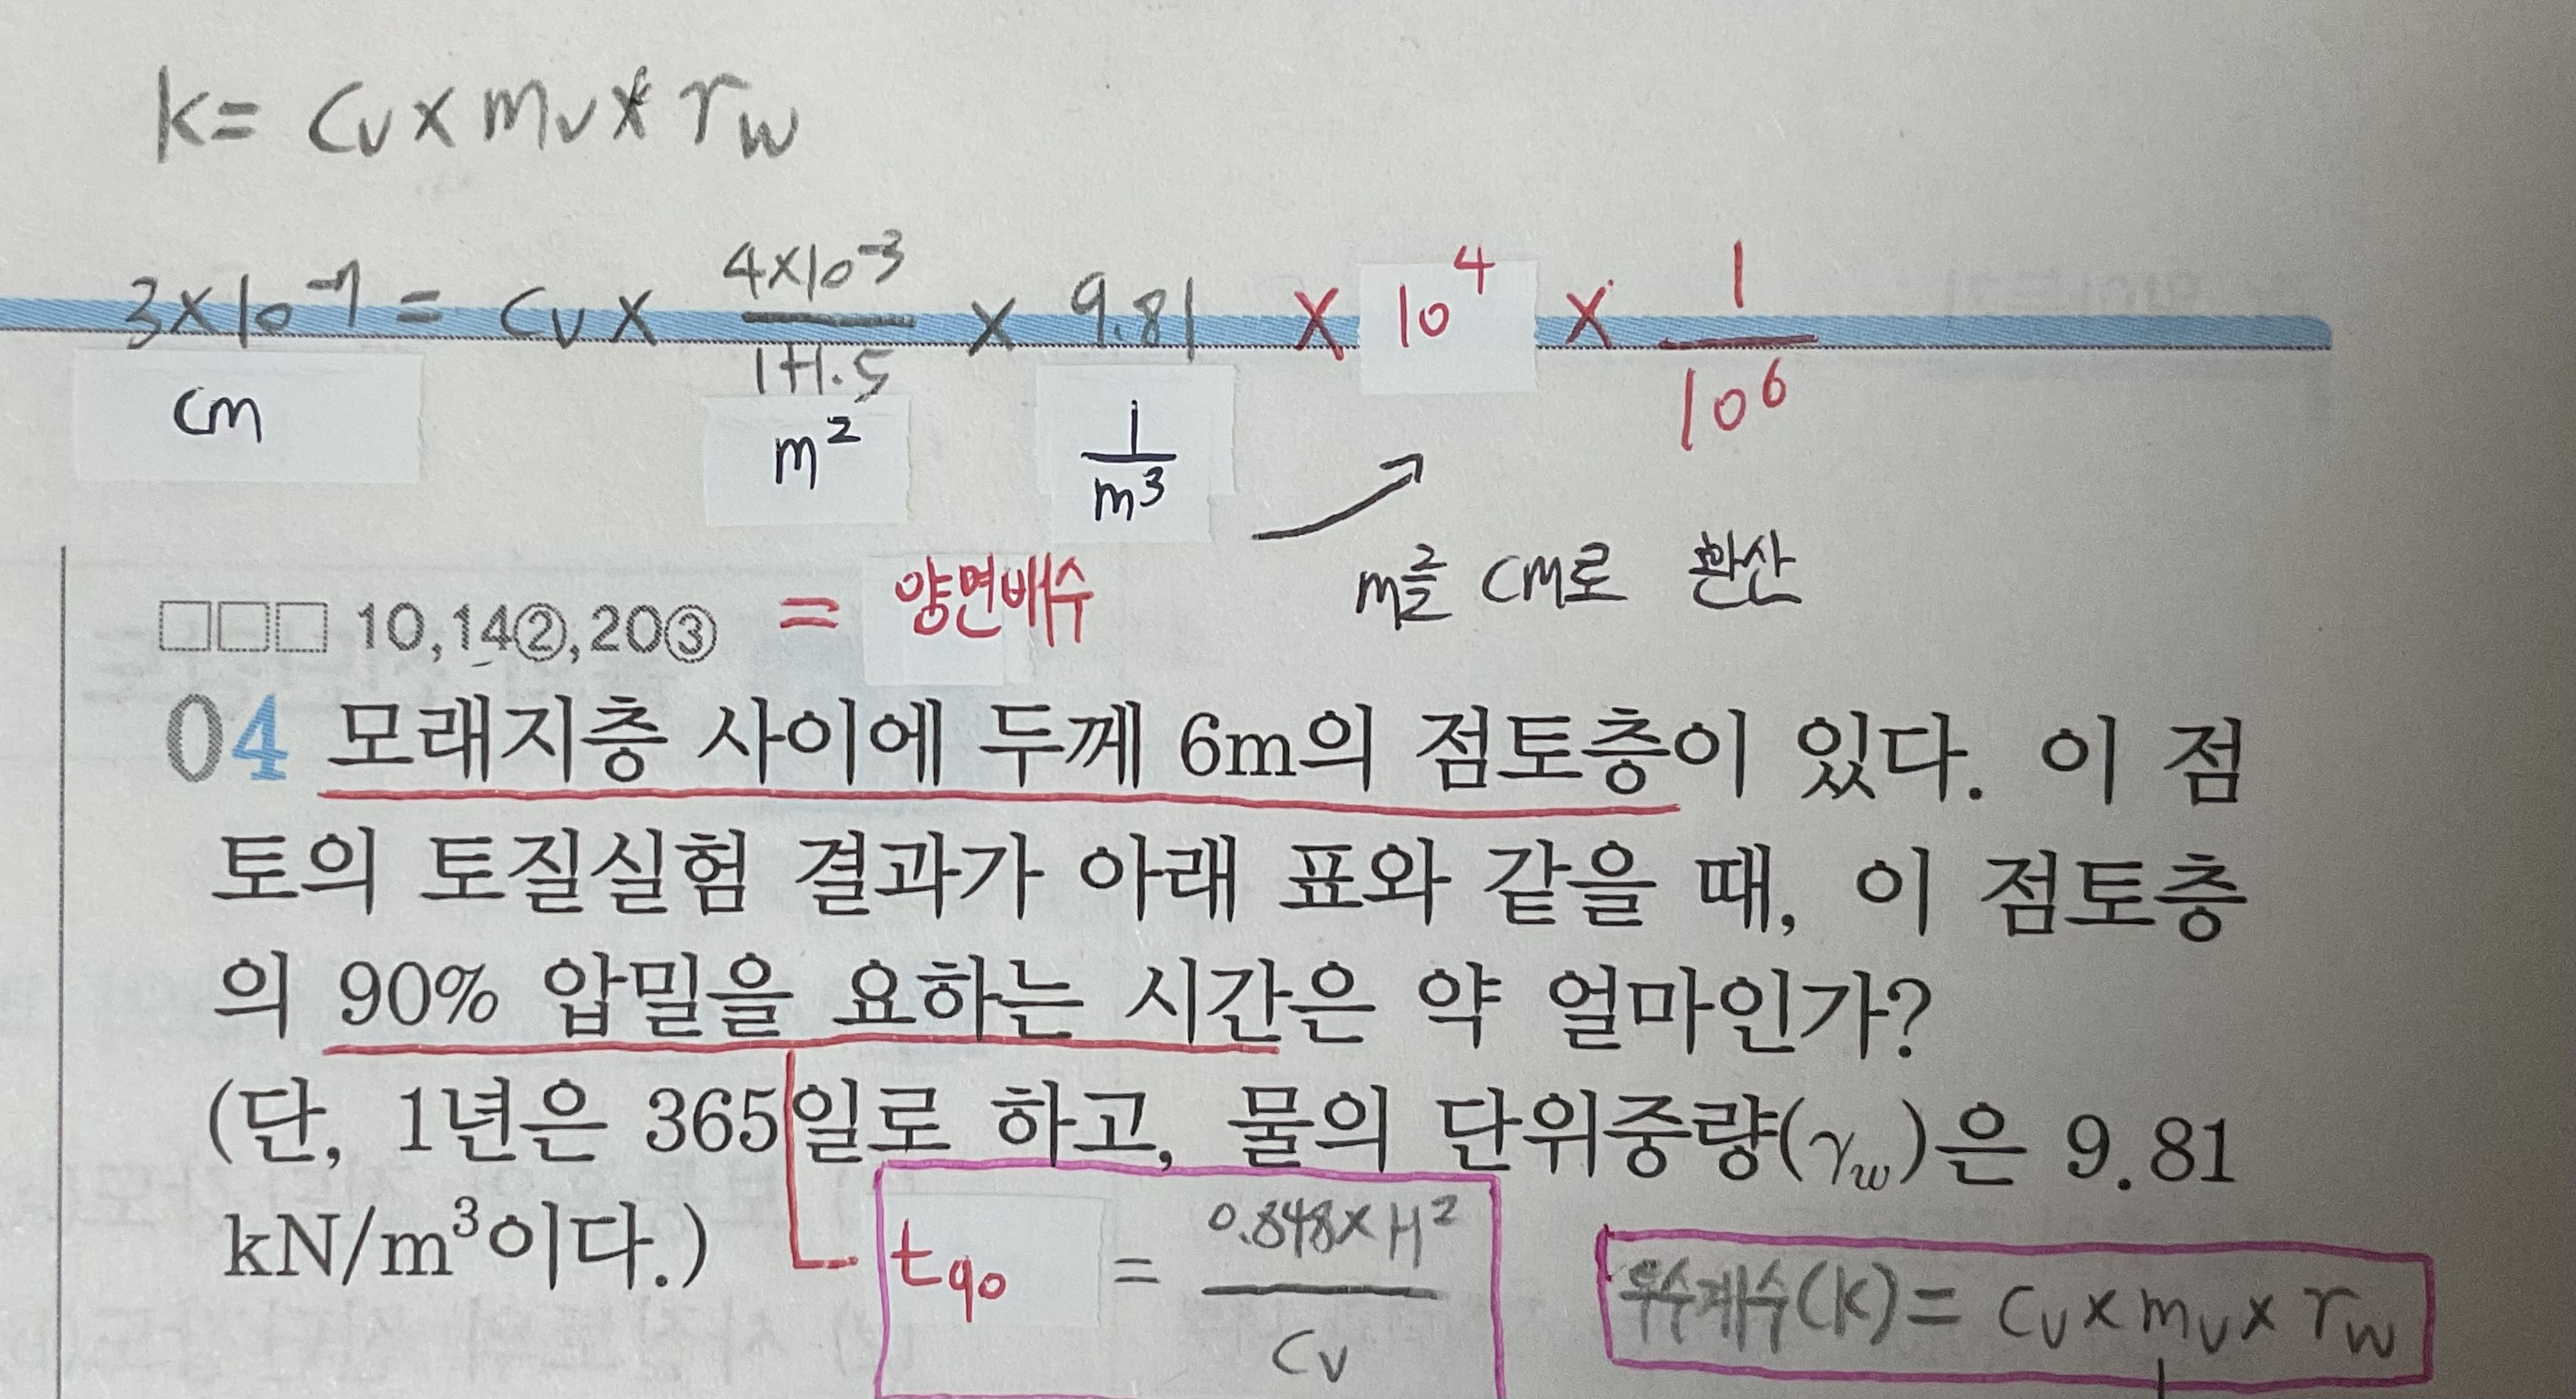 k= Cv × mv × rw
4×10⁻³ 1
3×10⁻⁷ = Cv × ─── × 9.81 × 10⁴ × ───
1+1.5 10⁶
cm m² 1/m³
m를 cm로 환산
□□□ 10,14②,20③ = 양면배수
04 모래지층 사이에 두께 6m의 점토층이 있다. 이 점
토의 토질실험 결과가 아래 표와 같을 때, 이 점토층
의 90% 압밀을 요하는 시간은 약 얼마인가?
(단, 1년은 365일로 하고, 물의 단위중량(γw)은 9.81
kN/m³이다.)
t90 = 0.848×H² / Cv
투수계수(k)= Cv × mv × rw